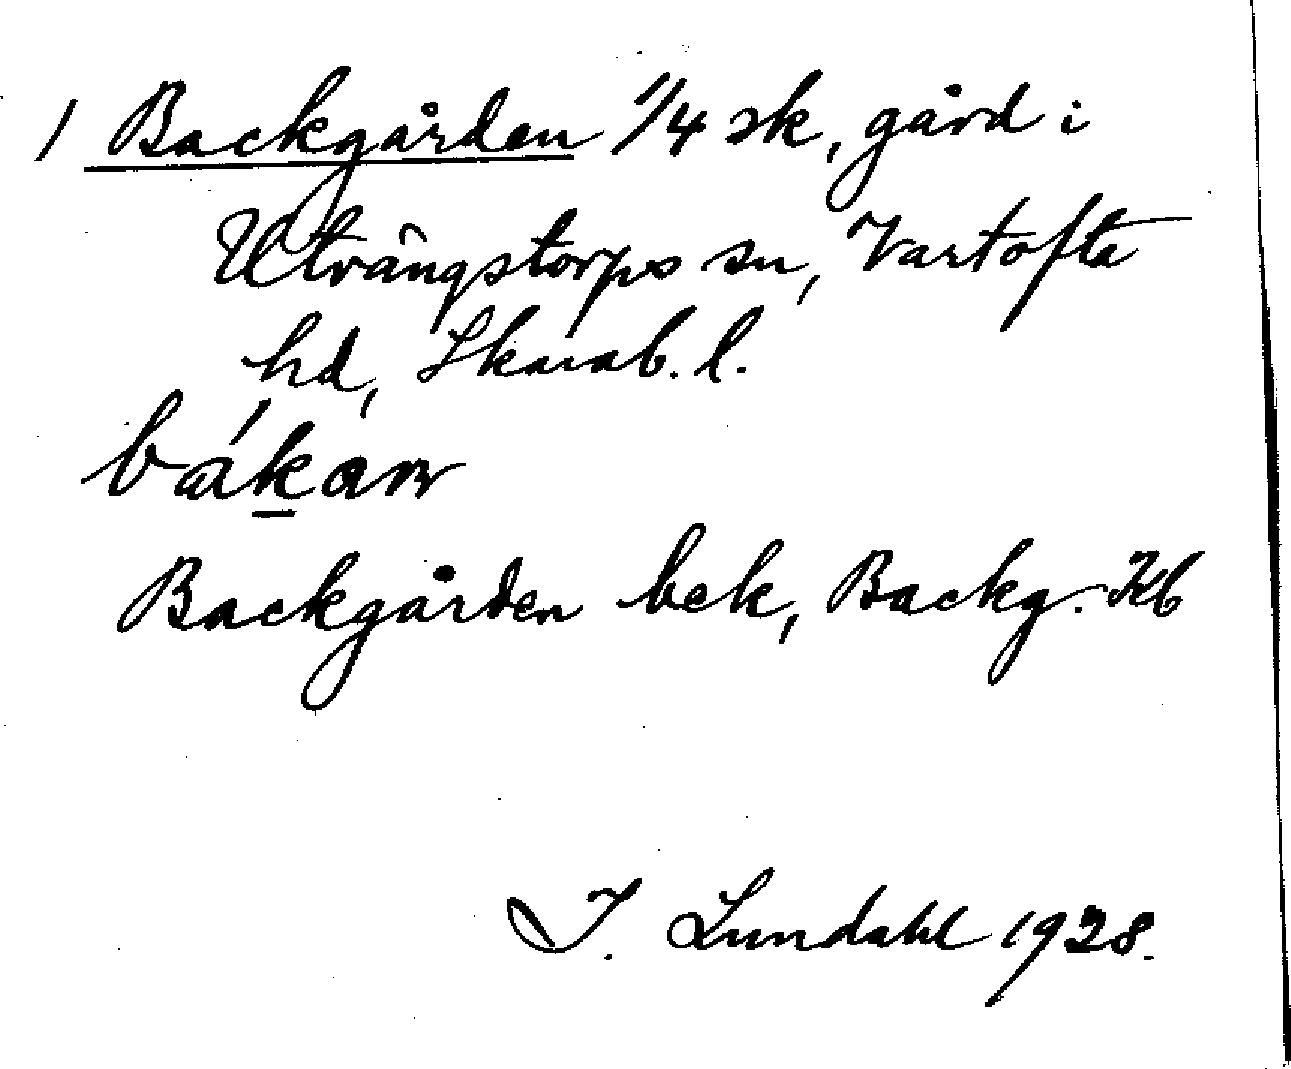 1 Backgården 1/4 sk, gård i
Utvängstorps sn, Vartofta
hd, Skarab. l.
bákan
Backgården bek, Backg. Kb
I. Lundahl 1928.